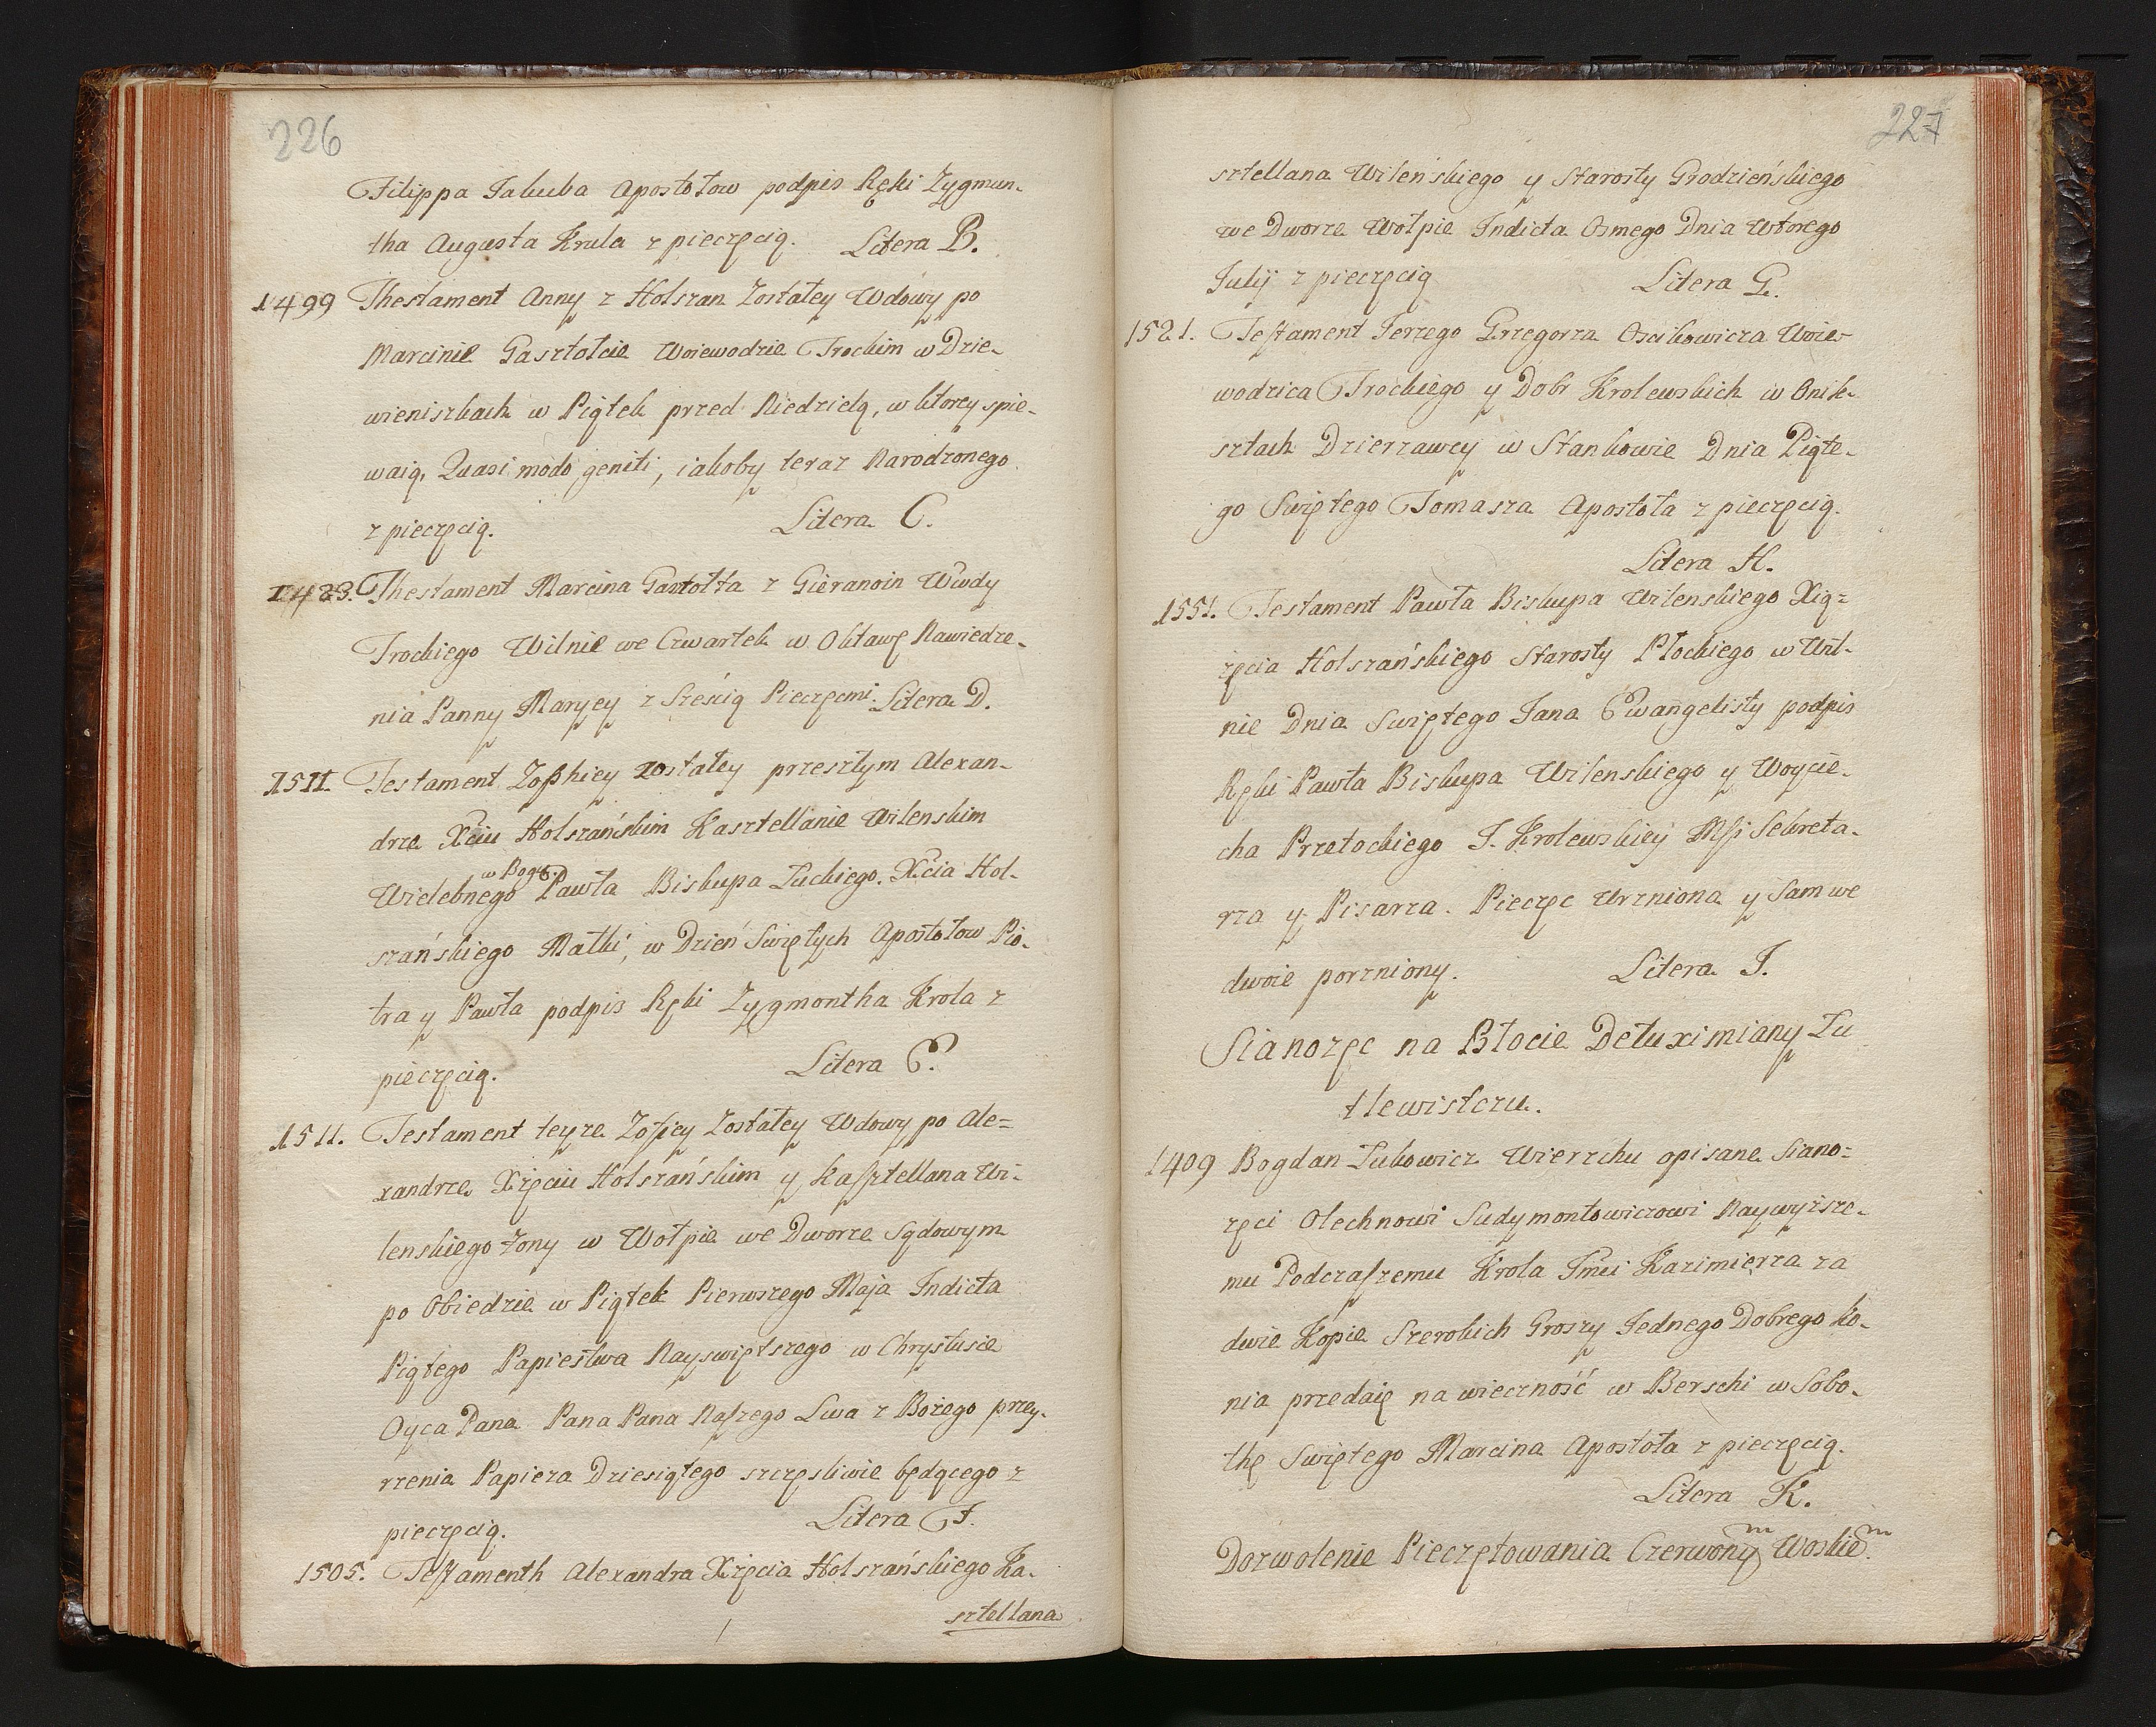 226
Filippa Jakuba Apostołow podpis Ręki Zygmun-
tha Augusta Krula z pieczęcią. Litera B.
1499 Thestament Anny z Holszan Zostałey Wdowy po
Marcinie Gasztołcie Woiewodzie Trockim w Dzie-
wieniszkach w Piątek przed Niedzielą, w ktorey spie-
waią, Quasi modo geniti, iakoby teraz Narodzonego
z pieczęcią. Litera C.
1483. Thestament Marcina Gasztołta z Gieranoin Wwdy
Trockiego Wilnie we Czwartek w Oktawę Nawiedze-
nia Panny Maryey z Sześcią Pieczęcmi. Litera D.
1511. Testament Zophiey zostałey przeszłym Alexan-
drze Xciu Holszańskim Kasztellanie Wilenskim
Wielebnego w Bogu Pawła Biskupa Łuckiego. Xcia Hol-
szańskiego Matki, w Dzień Swiętych Apostołow Pio-
tra y Pawła podpis Ręki Zygmontha Krola z
pieczęcią. Litera E.
1511. Testament teyże Zofiey Zostałey Wdowy po Ale=
xandrze Xzęciu Holszańskim y Kasztellana Wi-
lenskiego Żony w Wołpie we Dworze Sądowym
po Obiedzie w Piątek Pierwszego Maja Indicta
Piątego Papiestwa Nayswiętszego w Chrystusie
Oyca Pana Pana Pana Naszego Lwa z Bożego przey-
rzenia Papieża Dziesiątego szczęsliwie będącego z
pieczęcią. Litera F.
1505. Testamenth Alexandra Xzęcia Holszańskiego Ka-
sztellana
227
sztellana Wileńskiego y Starosty Grodzieńskiego
we Dworze Wołpie Indicta Osmego Dnia Wtorego
Julij z pieczęcią Litera G.
1521. Testament Jerzego Grzegorza Oscikowicza Woie-
wodzica Trockiego y Dobr Krolewskich w Onik-
sztach Dzierzawcy w Stankowie Dnia Piąte-
go Swiętego Tomasza Apostoła z pieczęcią.
Litera H.
1551. Testament Pawła Biskupa Wilenskiego Xią=
żęcia Holszańskiego Starosty Płockiego w Wil-
nie Dnia Swiętego Jana Ewangelisty podpis
Ręki Pawła Biskupa Wilenskiego y Woycie-
cha Przetockiego J. Krolewskiey Msi Sekreta-
rza y Pisarza. Pieczęc Urzniona y Sam we
dwoie porzniony. Litera J.
Sianozęc na Błocie Detuximiany Lu
tlewistczu.
1409 Bogdan Lubowicz Wierzchu opisane Siano=
zęci Olechnowi Sudymontowiczowi Naywyższe-
mu Podczaszemu Krola Jmci Kazimierza za
dwie Kopie Szerokich Groszy Jednego Dobrego ko-
nia przedaię na wieczność w Berschi w Sobo-
thę Swiętego Marcina Apostoła z pieczęcią.
Litera K.
Dozwolenie Pieczętowania Czerwonym Woskiem.